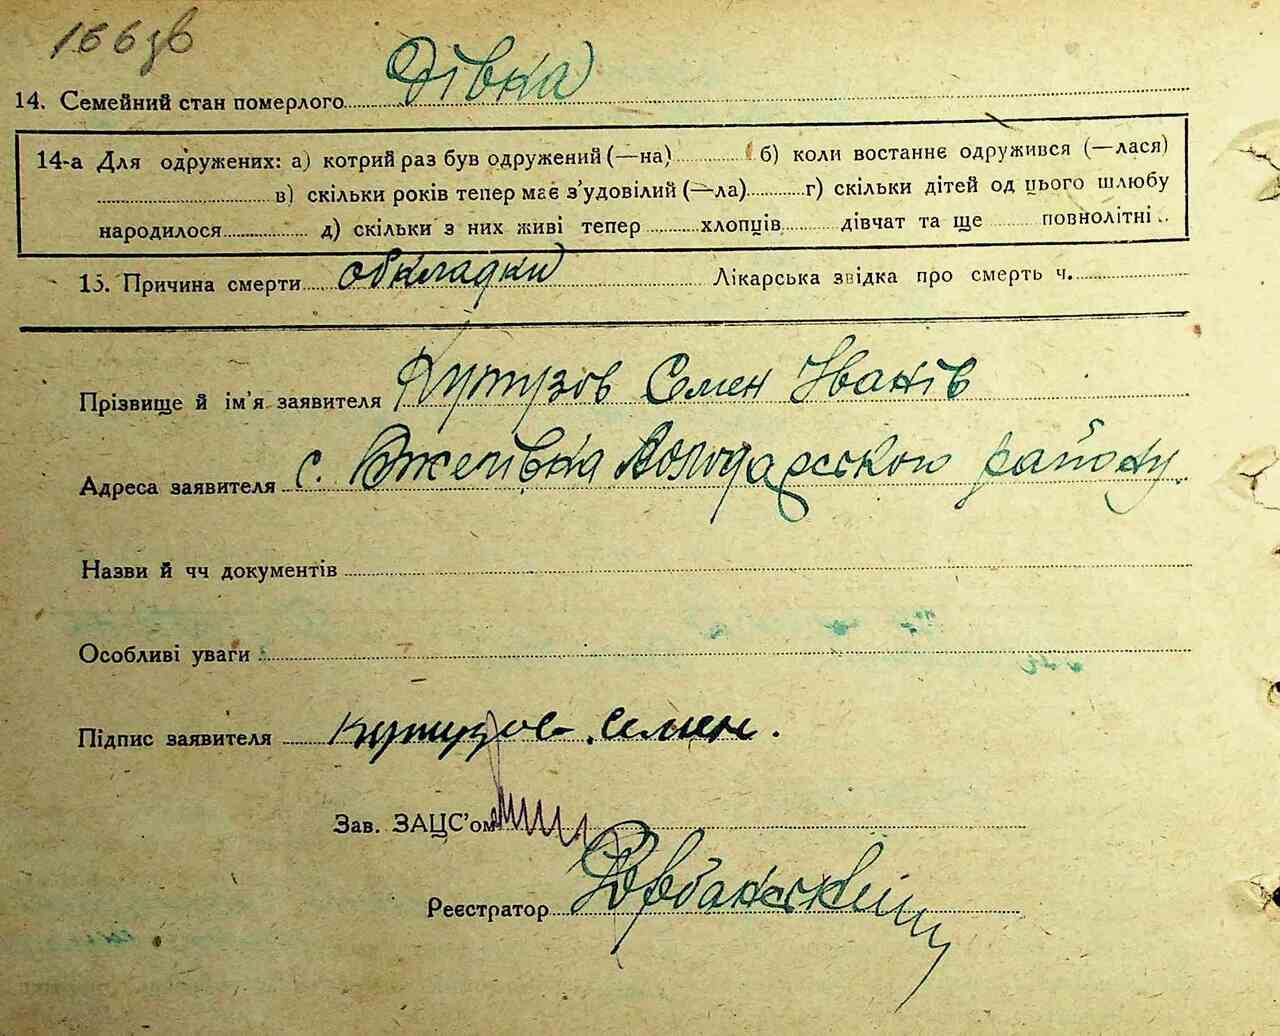 166зв
14. Семейний стан померлого Дівка
14-а Для одружених: а) котрий раз був одружений (—на) б) коли востаннє одружився (—лася)
в) скільки років тепер має з'удовілий (—ла) г) скільки дітей од цього шлюбу
народилося д) скільки з них живі тепер хлопців дівчат та ще повнолітні
15. Причина смерти обкладки Лікарська звідка про смерть ч.
Прізвище й ім'я заявителя Кутузов Семен Іванів
Адреса заявителя с. Володарського району
Назви й чч документів
Особливі уваги
Підпис заявителя Кутузов Семен.
Зав. ЗАЦС'ом
Реєстратор